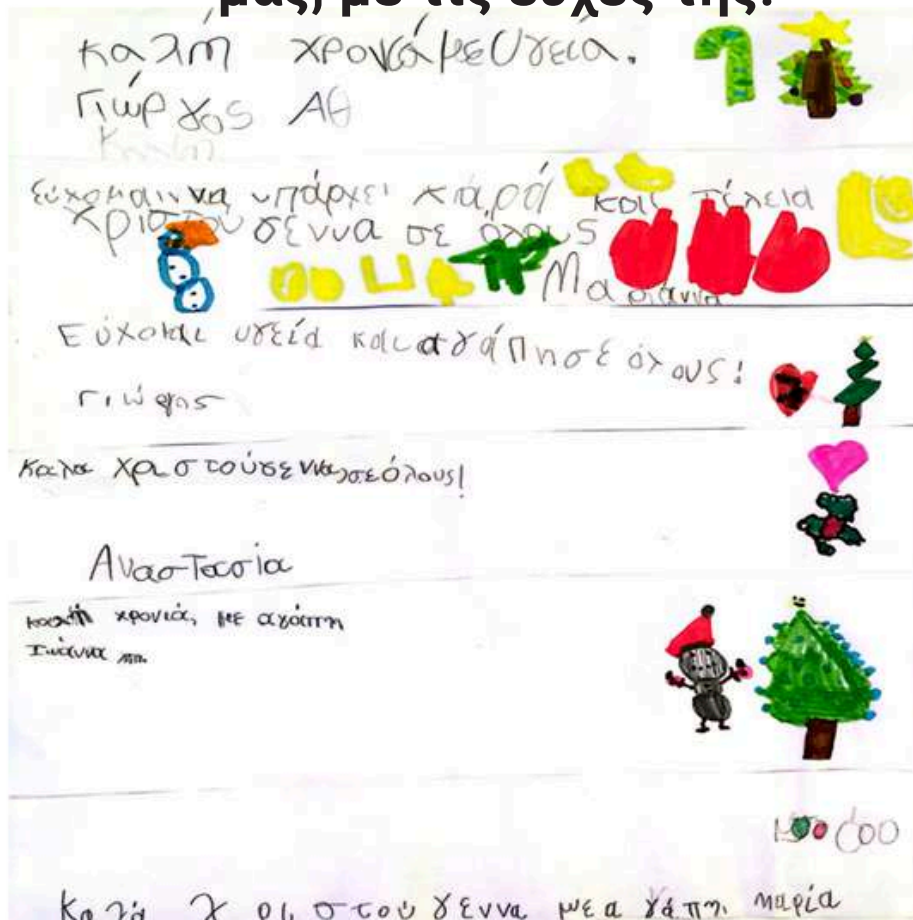 μας, με τις ευχές της!
καλή χρονιά με υγεία.
Γιώργος Αθ
Εύχομαι να υπάρχει χαρά και τέλεια
Χριστούγεννα σε όλους
Μαριάννα
Εύχομαι υγεία και αγάπη σε όλους!
Γιώργος
Καλα Χριστούγεννα σε όλους!
Αναστασία
καλή χρονιά, με αγάπη
Ιωάννα
Καλά Χριστούγεννα με αγάπη μαρία